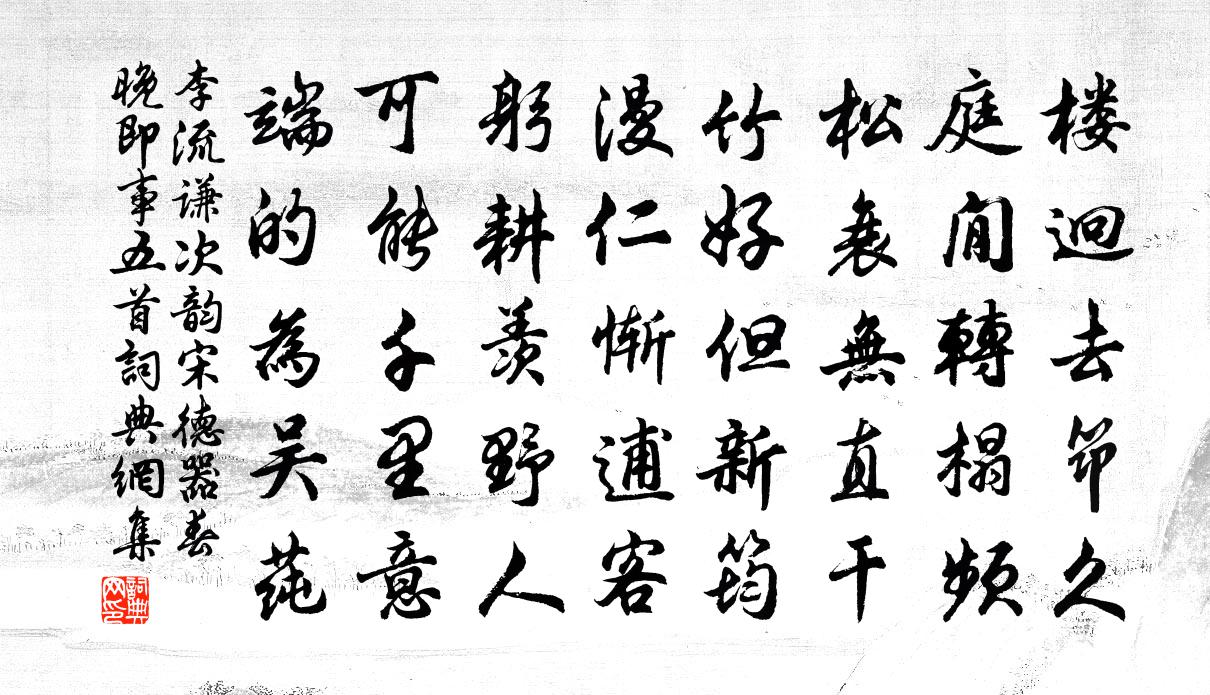 楼迥去笻久
庭閒轉榻頻
松衰無直干
竹好但新筠
漫仁惭逋客
躬耕羡野人
可能千里意
端的為吴莼
李流谦次韵宋德器春
晚即事五首詞典網集
詞典网印